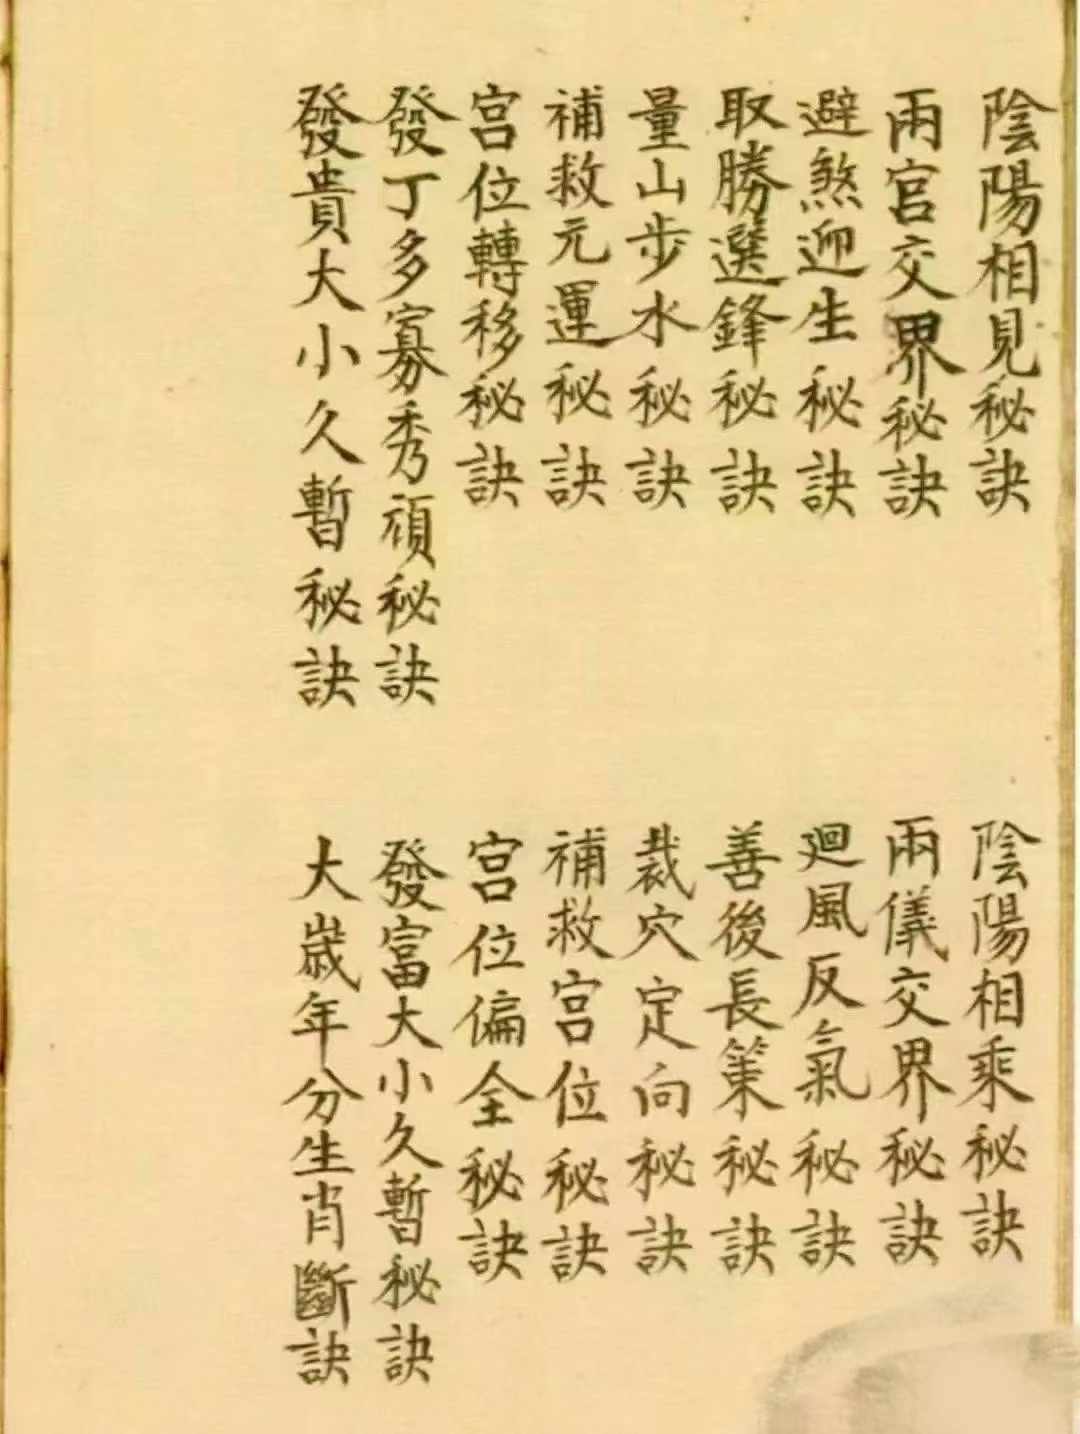 陰陽相見秘訣
陰陽相乘秘訣
兩宮交界秘訣
兩儀交界秘訣
避煞迎生秘訣
廻風反氣秘訣
取勝選鋒秘訣
善後長策秘訣
量山步水秘訣
裁穴定向秘訣
補救元運秘訣
補救宮位秘訣
宮位轉移秘訣
宮位偏全秘訣
發丁多寡秀頑秘訣
發富大小久暫秘訣
發貴大小久暫秘訣
大歲年分生肖斷訣